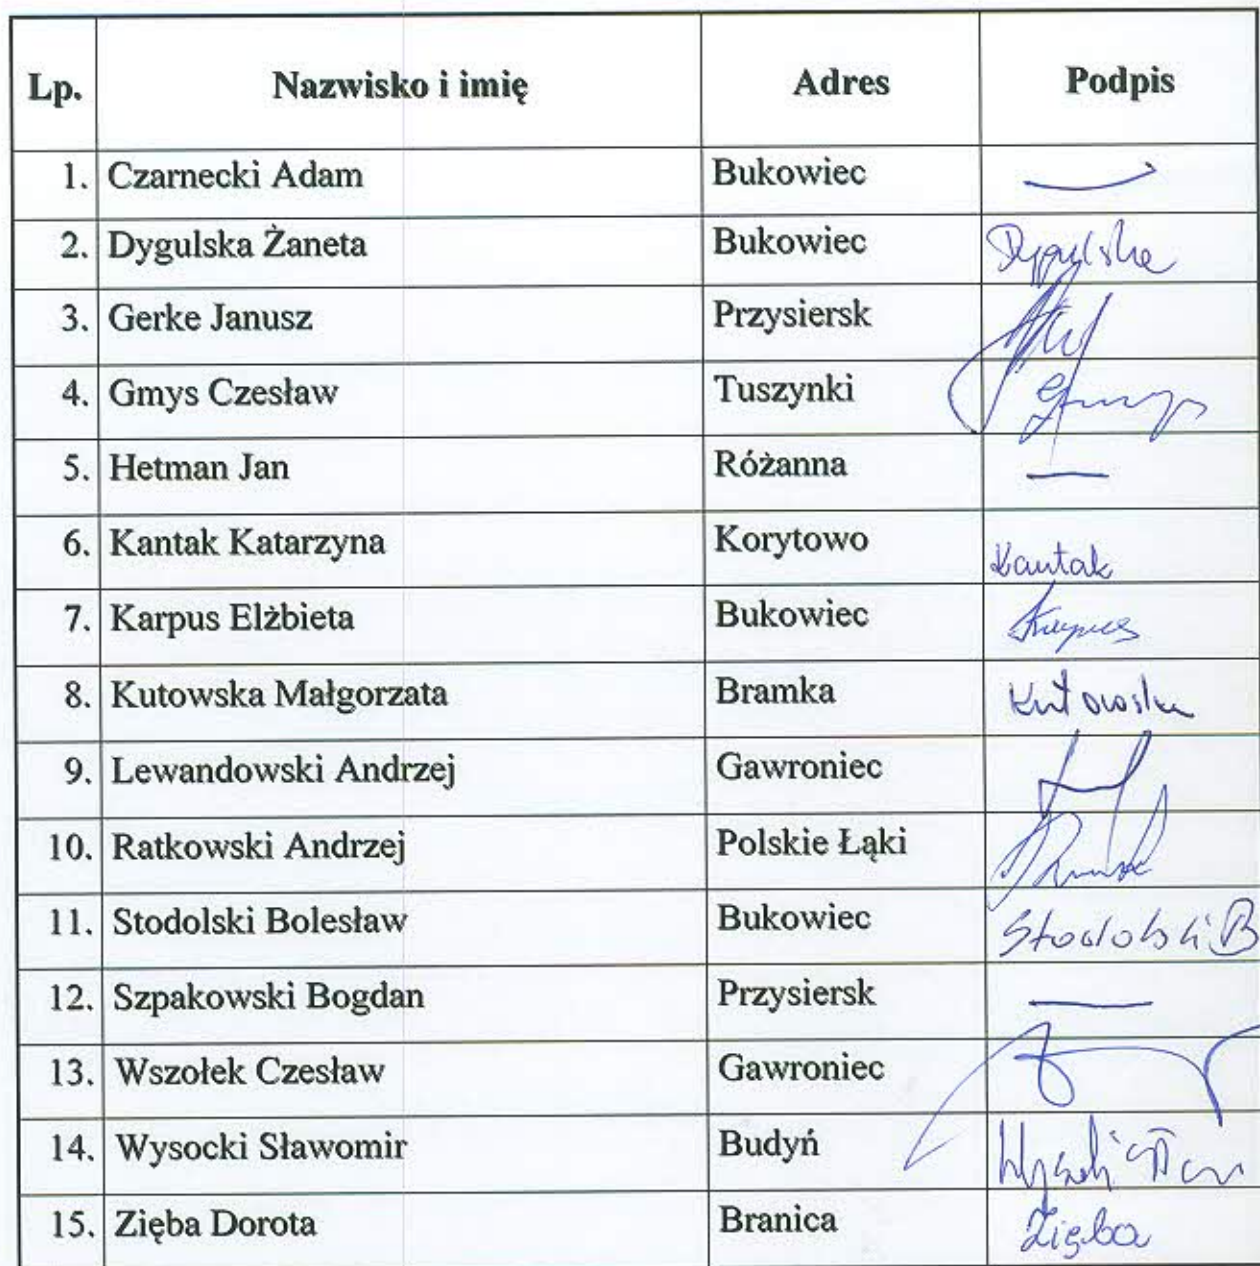 Lp. Nazwisko i imię Adres Podpis
1. Czarnecki Adam Bukowiec —
2. Dygulska Żaneta Bukowiec Dygulska
3. Gerke Janusz Przysiersk
4. Gmys Czesław Tuszynki Gmys
5. Hetman Jan Różanna —
6. Kantak Katarzyna Korytowo Kantak
7. Karpus Elżbieta Bukowiec Karpus
8. Kutowska Małgorzata Bramka Kutowska
9. Lewandowski Andrzej Gawroniec
10. Ratkowski Andrzej Polskie Łąki
11. Stodolski Bolesław Bukowiec Stodolski B
12. Szpakowski Bogdan Przysiersk —
13. Wszołek Czesław Gawroniec
14. Wysocki Sławomir Budyń
15. Zięba Dorota Branica Zięba